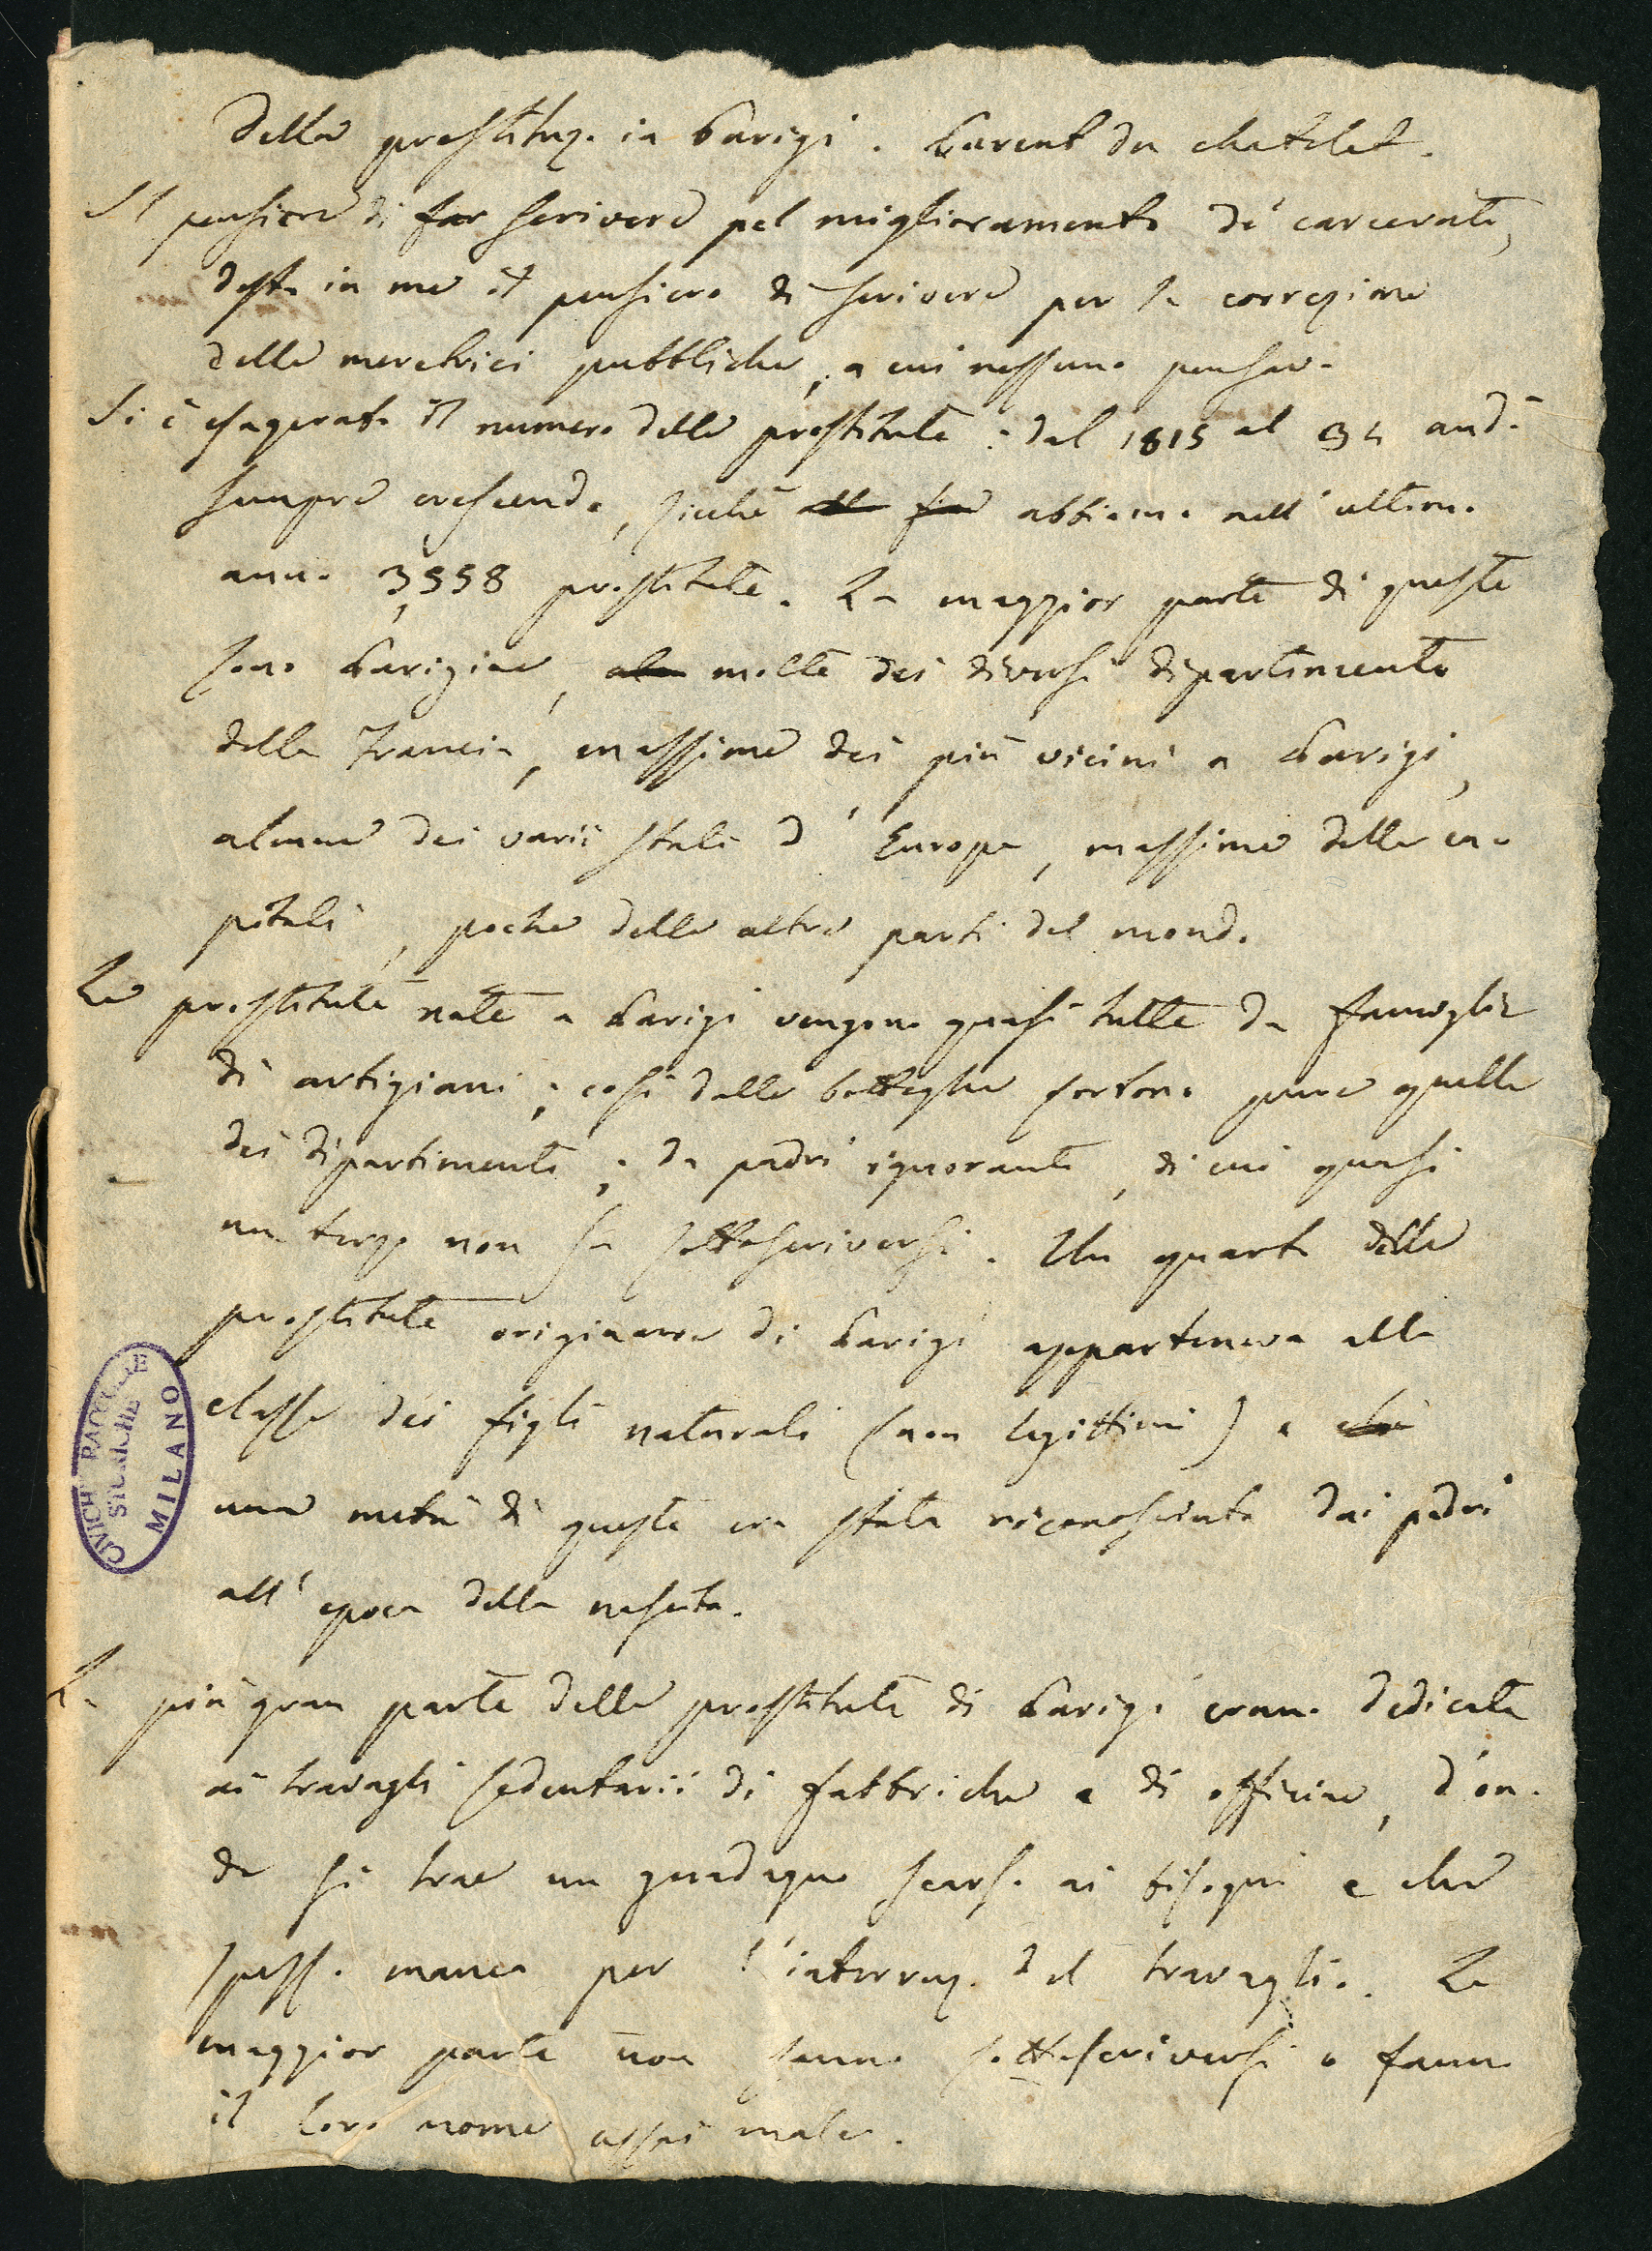 Della prostituz. in Parigi. Parent du chatelet.
Il pensiero di far scrivere pel miglioramento de' carcerati,
destò in me il pensiero di scrivere per la correzione
delle meretrici pubbliche, a cui nessuno pensava.
Si è esagerato il numero delle prostitute: dal 1815 al 32 andò
sempre crescendo, sicchè alla fine abbiamo nell'ultimo
anno 3,558 prostitute. La maggior parte di queste
sono Parigine, alcu molte dei diversi dipartimenti
della Francia, massime dei più vicini a Parigi,
alcune dei varii stati d'Europa, massime delle ca-
pitali, poche delle altre parti del mondo.
Le prostitute nate a Parigi vengono quasi tutte da famiglie
di artigiani; così dalle botteghe sortono pure quelle
dei dipartimenti; da padri ignoranti, di cui quasi
un terzo non sa sottoscriversi. Un quarto delle
prostitute originarie di Parigi apparteneva alla
classe dei figli naturali (non legittimi) e che
una metà di queste era stata riconosciuta dai padri
all'epoca della nascita.
La più gran parte delle prostitute di Parigi erano dedicate
ai travagli sedentarii di fabbriche e di officine, d'on-
de si trae un guadagno scarso ai bisogni e che
spesso manca per l'interruz. del travaglio. La
maggior parte non sanno sottoscriversi o fanno
il loro nome assai male.
CIVICHE RACCOLTE
STORICHE
MILANO